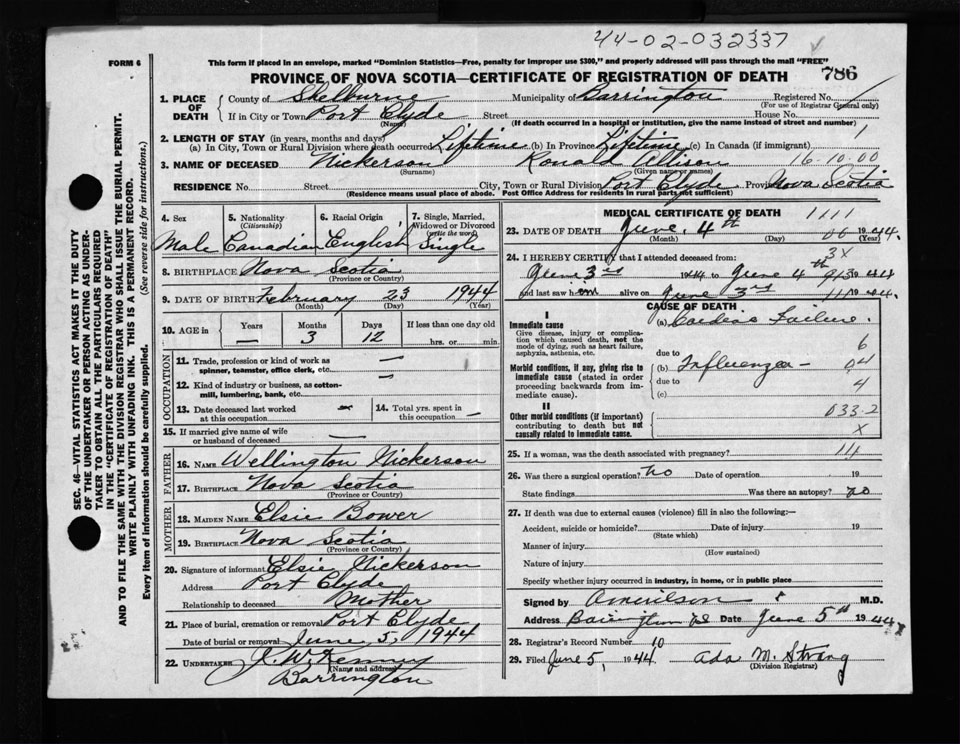 44-02-032337
FORM 6
This form if placed in an envelope, marked "Dominion Statistics—Free, penalty for improper use $300," and properly addressed will pass through the mail "FREE"
PROVINCE OF NOVA SCOTIA—CERTIFICATE OF REGISTRATION OF DEATH 786
1. PLACE OF DEATH County of Shelburne Municipality of Barrington Registered No.
(For use of Registrar General only)
If in City or Town Port Clyde Street House No.
(Name) (If death occurred in a hospital or institution, give the name instead of street and number)
2. LENGTH OF STAY (in years, months and days)
(a) In City, Town or Rural Division where death occurred Lifetime (b) In Province Lifetime (c) In Canada (if immigrant) 1
3. NAME OF DECEASED Nickerson Ronald Allison 16-10-00
(Surname) (Given name or names)
RESIDENCE No. Street City, Town or Rural Division Port Clyde Province Nova Scotia
(Residence means usual place of abode. Post Office Address for residents in rural parts not sufficient)
4. Sex
Male
5. Nationality
(Citizenship)
Canadian
6. Racial Origin
English
7. Single, Married, Widowed or Divorced
(write the word)
Single
8. BIRTHPLACE Nova Scotia
(Province or Country)
9. DATE OF BIRTH February 23 1944
(Month) (Day) (Year)
10. AGE in Years Months Days If less than one day old
— 3 12 hrs. or min.
OCCUPATION
11. Trade, profession or kind of work as spinner, teamster, office clerk, etc. —
12. Kind of industry or business, as cotton-mill, lumbering, bank, etc. —
13. Date deceased last worked at this occupation — 14. Total yrs. spent in this occupation —
15. If married give name of wife or husband of deceased —
FATHER
16. NAME Wellington Nickerson
17. BIRTHPLACE Nova Scotia
(Province or Country)
MOTHER
18. MAIDEN NAME Elsie Bower
19. BIRTHPLACE Nova Scotia
(Province or Country)
20. Signature of informant Elsie Nickerson
Address Port Clyde
Relationship to deceased Mother
21. Place of burial, cremation or removal Port Clyde
Date of burial or removal June 5, 1944
22. UNDERTAKER J. W. Kenney
(Name and address)
Barrington
MEDICAL CERTIFICATE OF DEATH 1111
23. DATE OF DEATH June 4th 06 1944.
(Month) (Day) (Year)
24. I HEREBY CERTIFY that I attended deceased from: 3X
June 3rd 1944 to June 4th 1944
and last saw him alive on June 3rd 1944.
CAUSE OF DEATH
I
Immediate cause
Give disease, injury or complication which caused death, not the mode of dying, such as heart failure, asphyxia, asthenia, etc.
(a) Cardiac Failure.
due to 6
Morbid conditions, if any, giving rise to immediate cause (stated in order proceeding backwards from immediate cause).
(b) Influenza — 04
due to 4
(c)
II
Other morbid conditions (if important) contributing to death but not causally related to immediate cause.
033.2
X
25. If a woman, was the death associated with pregnancy? 14
26. Was there a surgical operation? no Date of operation 19
State findings Was there an autopsy? no
27. If death was due to external causes (violence) fill in also the following:—
Accident, suicide or homicide? Date of injury 19
(State which)
Manner of injury
(How sustained)
Nature of injury
Specify whether injury occurred in industry, in home, or in public place
Signed by M.D.
Address Barrington Date June 5th 1944
28. Registrar's Record Number 10
29. Filed June 5, 1944. Ada M. Strang
(Division Registrar)
SEC. 46—VITAL STATISTICS ACT MAKES IT THE DUTY OF THE UNDERTAKER OR PERSON ACTING AS UNDERTAKER TO OBTAIN ALL THE PARTICULARS REQUIRED IN THE "CERTIFICATE OF REGISTRATION OF DEATH" AND TO FILE THE SAME WITH THE DIVISION REGISTRAR WHO SHALL ISSUE THE BURIAL PERMIT.
WRITE PLAINLY WITH UNFADING INK. THIS IS A PERMANENT RECORD.
Every item of information should be carefully supplied. (See reverse side for instructions.)